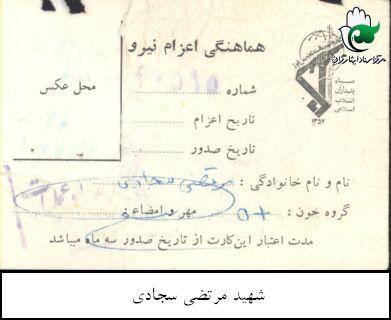 مرکز اسناد ایثارگران
هماهنگی اعزام نیرو
سپاه
پاسداران
انقلاب
اسلامی
۱۳۵۷
محل عکس
شماره
تاریخ اعزام
تاریخ صدور
نام و نام خانوادگی : مرتضی سجادی
گروه خون : O+ مهر و امضاء
مدت اعتبار این کارت از تاریخ صدور سه ماه میباشد
شهید مرتضی سجادی